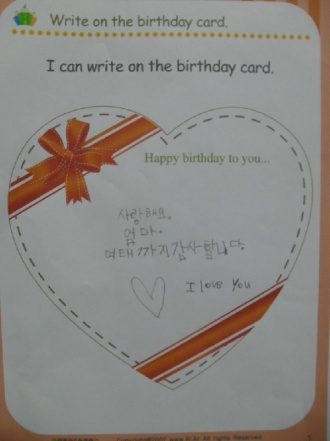 Write on the birthday card.
I can write on the birthday card.
Happy birthday to you...
사랑해요.
엄마.
여태까지감사합니다.
I love you